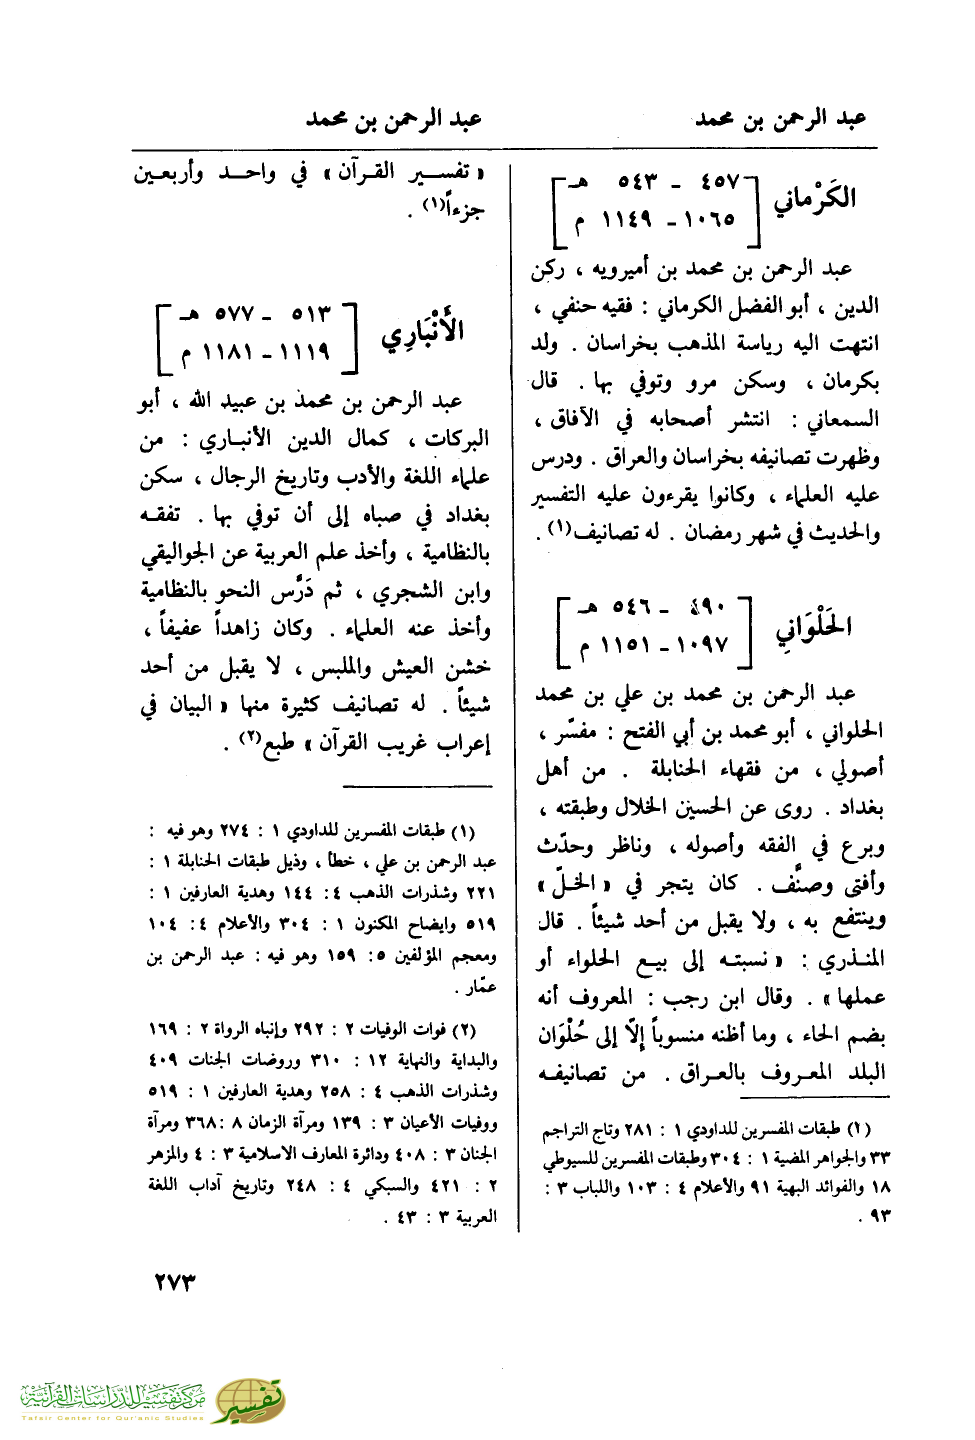 عبد الرحمن بن محمد
عبد الرحمن بن محمد
الكَرْماني
٤٥٧ - ٥٤٣ هـ
١٠٦٥ - ١١٤٩ م
عبد الرحمن بن محمد بن أميرويه ، ركن
الدين ، أبو الفضل الكرماني : فقيه حنفي ،
انتهت اليه رياسة المذهب بخراسان . ولد
بكرمان ، وسكن مرو وتوفي بها . قال
السمعاني : انتشر أصحابه في الآفاق ،
وظهرت تصانيفه بخراسان والعراق . ودرس
عليه العلماء ، وكانوا يقرءون عليه التفسير
والحديث في شهر رمضان . له تصانيف(١) .
الحَلْوَاني
٤٩٠ - ٥٤٦ هـ
١٠٩٧ - ١١٥١ م
عبد الرحمن بن محمد بن علي بن محمد
الحلواني ، أبو محمد بن أبي الفتح : مفسّر ،
أصولي ، من فقهاء الحنابلة . من أهل
بغداد . روى عن الحسين الخلال وطبقته ،
وبرع في الفقه وأصوله ، وناظر وحدّث
وأفتى وصنَّف . كان يتجر في « الخلّ »
وينتفع به ، ولا يقبل من أحد شيئاً . قال
المنذري : « نسبته إلى بيع الحلواء أو
عملها » . وقال ابن رجب : المعروف أنه
بضم الحاء ، وما أظنه منسوباً إلّا إلى حُلْوَان
البلد المعروف بالعراق . من تصانيفه
(١) طبقات المفسرين للداودي ١ : ٢٨١ وتاج التراجم
٣٣ والجواهر المضية ١ : ٣٠٤ وطبقات المفسرين للسيوطي
١٨ والفوائد البهية ٩١ والأعلام ٤ : ١٠٣ واللباب ٣ :
٩٣ .
« تفسير القرآن » في واحد وأربعين
جزءاً(١) .
الأَنْبَارِي
٥١٣ - ٥٧٧ هـ
١١١٩ - ١١٨١ م
عبد الرحمن بن محمد بن عبيد الله ، أبو
البركات ، كمال الدين الأنباري : من
علماء اللغة والأدب وتاريخ الرجال ، سكن
بغداد في صباه إلى أن توفي بها . تفقه
بالنظامية ، وأخذ علم العربية عن الجواليقي
وابن الشجري ، ثم دَرَّس النحو بالنظامية
وأخذ عنه العلماء . وكان زاهداً عفيفاً ،
خشن العيش والملبس ، لا يقبل من أحد
شيئاً . له تصانيف كثيرة منها « البيان في
إعراب غريب القرآن » طبع(٢) .
(١) طبقات المفسرين للداودي ١ : ٢٧٤ وهو فيه :
عبد الرحمن بن علي ، خطأ ، وذيل طبقات الحنابلة ١ :
٢٢١ وشذرات الذهب ٤ : ١٤٤ وهدية العارفين ١ :
٥١٩ وايضاح المكنون ١ : ٣٠٤ والأعلام ٤ : ١٠٤
ومعجم المؤلفين ٥ : ١٥٩ وهو فيه : عبد الرحمن بن
عمّار .
(٢) فوات الوفيات ٢ : ٢٩٢ وإنباه الرواة ٢ : ١٦٩
والبداية والنهاية ١٢ : ٣١٠ وروضات الجنات ٤٠٩
وشذرات الذهب ٤ : ٢٥٨ وهدية العارفين ١ : ٥١٩
ووفيات الأعيان ٣ : ١٣٩ ومرآة الزمان ٨ : ٣٦٨ ومرآة
الجنان ٣ : ٤٠٨ ودائرة المعارف الاسلامية ٣ : ٤ والمزهر
٢ : ٤٢١ والسبكي ٤ : ٢٤٨ وتاريخ آداب اللغة
العربية ٣ : ٤٣ .
٢٧٣
مركز تفسير للدراسات القرآنية
Tafsir Center for Qur'anic Studies
تفسير